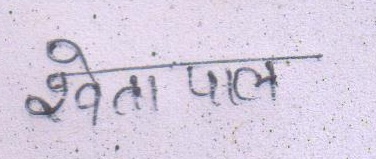 श्वेता पाल